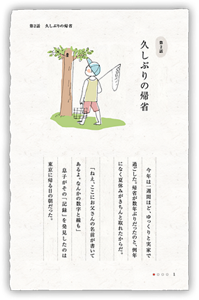 第2話 久しぶりの帰省
第2話
久しぶりの帰省
今年も一週間ほど、ゆっくりと実家で
過ごした。帰省が数年ぶりだったのと、例年
になく夏休みがきちんと取れたからだ。
「ねえ、ここにお父さんの名前が書いて
あるよ。なんかの数字と線も」
息子がその「記録」を発見したのは
東京に帰る日の朝だった。
1